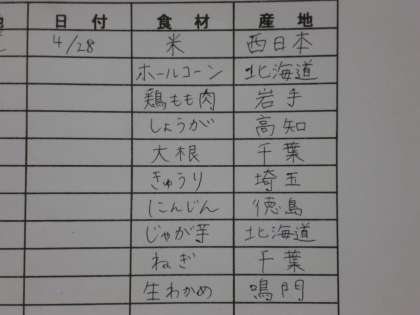 日付 食材 産地
4/28 米 西日本
ホールコーン 北海道
鶏もも肉 岩手
しょうが 高知
大根 千葉
きゅうり 埼玉
にんじん 徳島
じゃが芋 北海道
ねぎ 千葉
生わかめ 鳴門